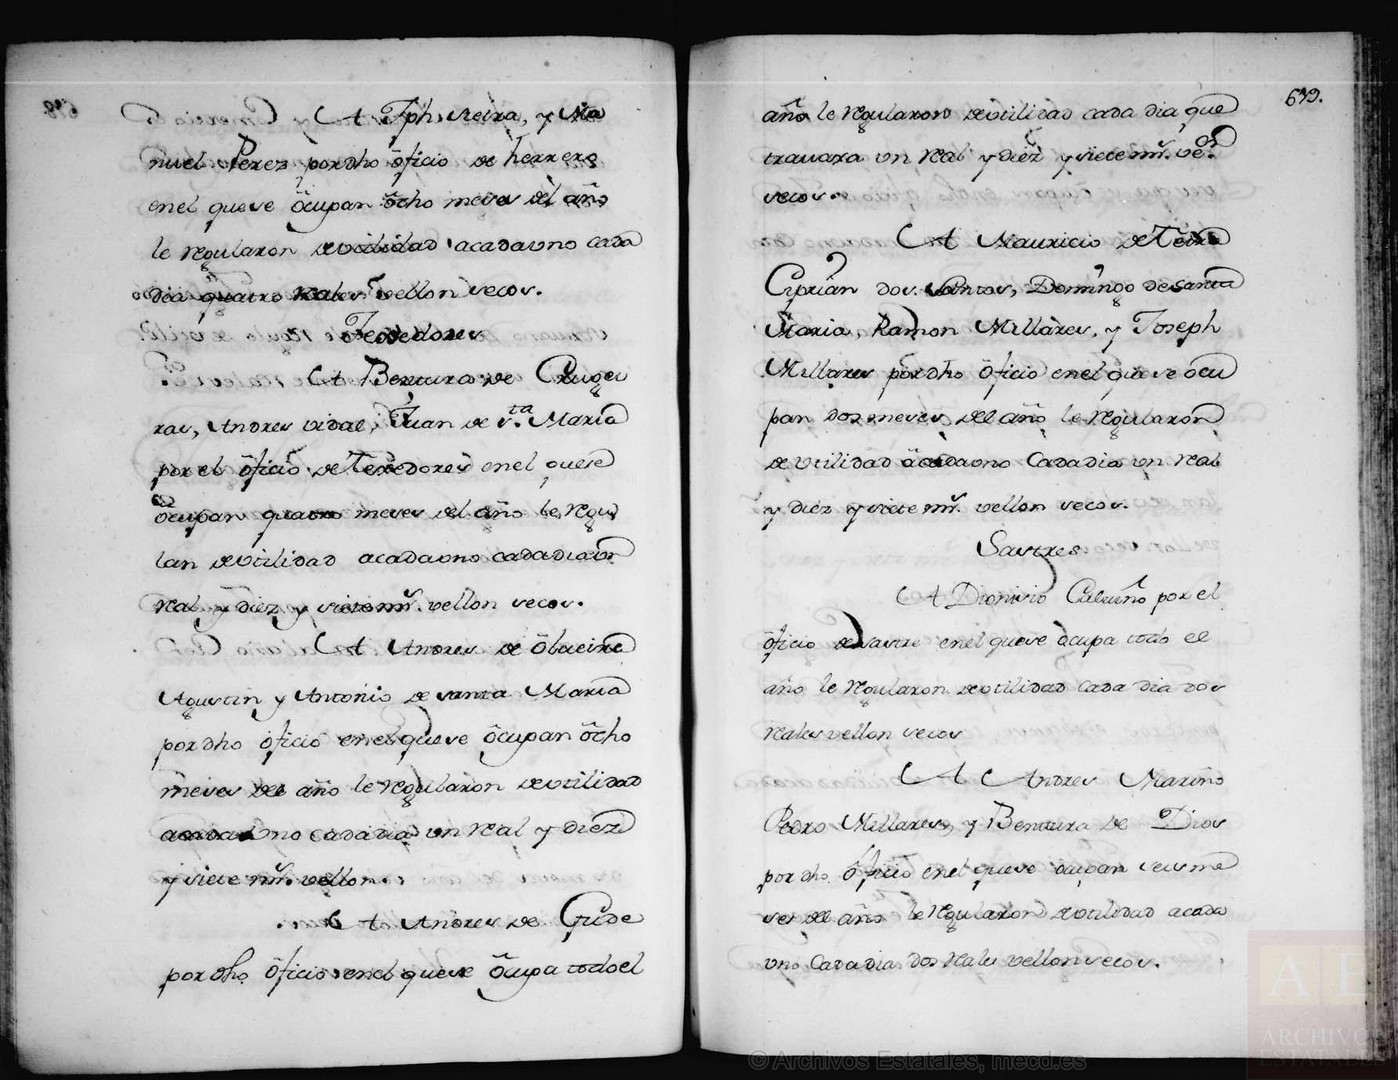 A Jph. Vieira, y Ma
nuel Perez por dho oficio de herrero
en el que se ocupan ocho meses del año
le regularon de utilidad a cada uno cada
dia quatro reales vellon secos.
Texedores
A Bentura de Brugei
ras, Andres vidal, Juan de Sta. Maria
por el oficio de Texedores en el que se
ocupan quatro meses del año le regu
lan de utilidad a cada uno cada dia un
real y diez y siete mrs. vellon secos.
A Andres de Olveira
Agustin y Antonio de santa Maria
por dho oficio en el que se ocupan ocho
meses del año le regularon de utilidad
a cada uno cada dia un real y diez
y siete mrs. vellon.
A Andres de Cride
por dho oficio en el que se ocupa todo el
639.
año le regularon de utilidad cada dia que
travaxa un real y diez y siete mrs. von.
secos.
A Mauricio de Teira
Ciprian dos Santos, Domingo de santa
Maria, Ramon Millares, y Joseph
Millares por dho oficio en el que se ocu
pan dos meses del año le regularon
de utilidad a cada uno cada dia un real
y diez y siete mrs. vellon secos.
Sastres
A Dionisio Calviño por el
oficio de sastre en el que se ocupa todo el
año le regularon de utilidad cada dia dos
reales vellon secos
A Andres Mariño
Pedro Millares, y Bentura de Dios
por dho oficio en el que se ocupan seis me
ses del año le regularon de utilidad a cada
uno Cada dia dos reales vellon secos.
© Archivos Estatales, mecd.es
AE
ARCHIVOS
ESTATALES